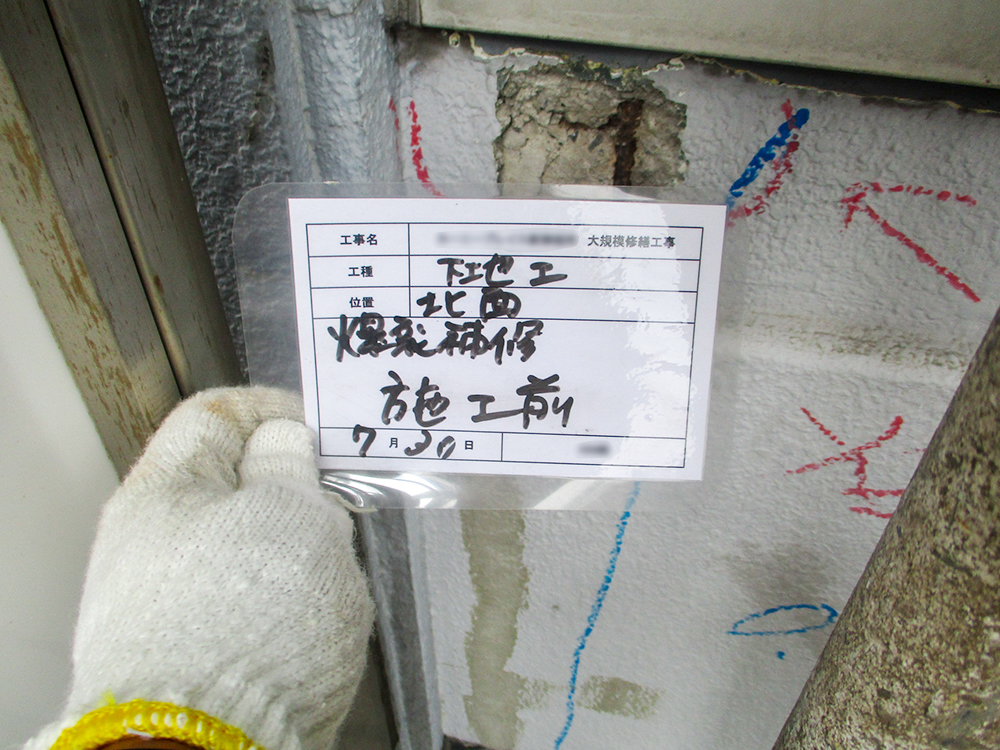 工事名 大規模修繕工事
工種 下地工
位置 北面
爆裂補修
施工前
7月30日